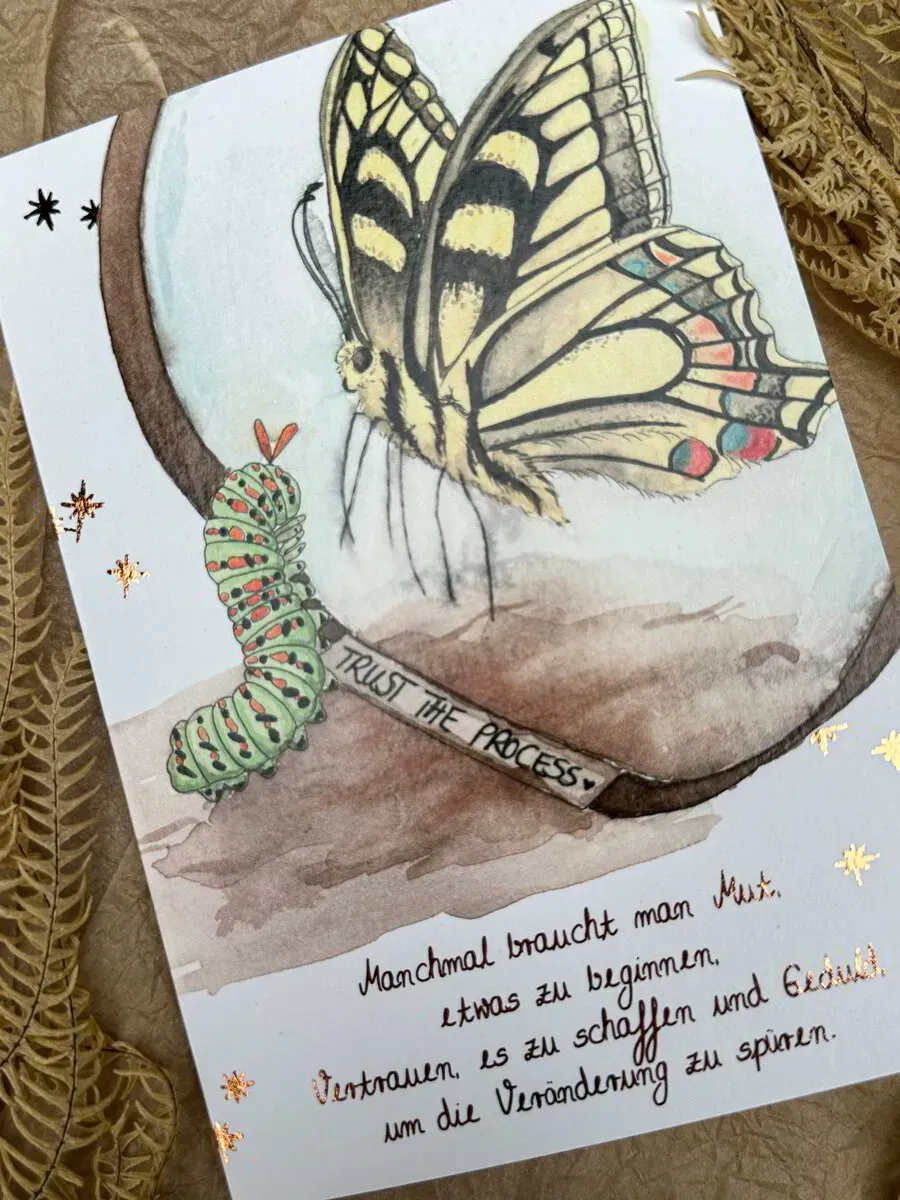 TRUST THE PROCESS ♥
Manchmal braucht man Mut,
etwas zu beginnen,
Vertrauen, es zu schaffen und Geduld,
um die Veränderung zu spüren.